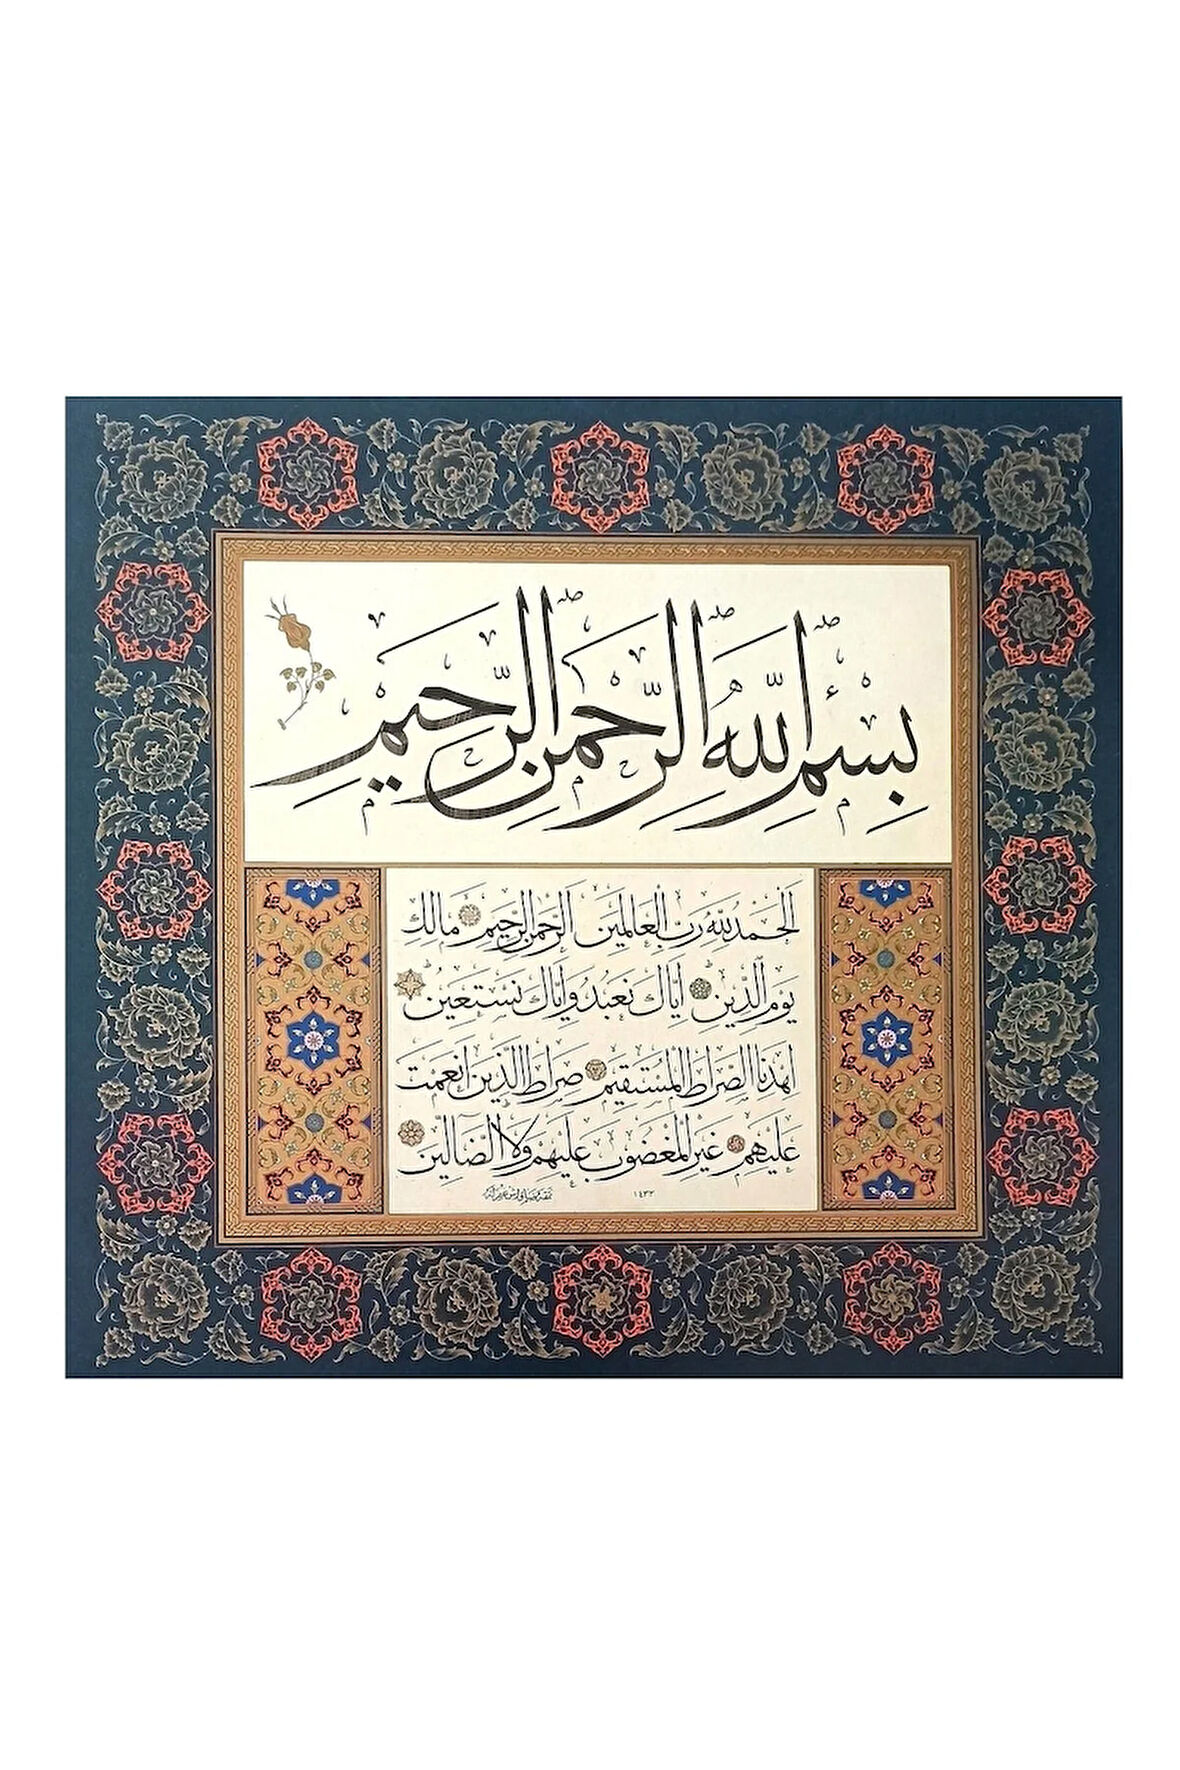 بِسْمِ اللّٰهِ الرَّحْمٰنِ الرَّحِيمِ
اَلْحَمْدُ لِلّٰهِ رَبِّ الْعَالَمِينَ الرَّحْمٰنِ الرَّحِيمِ مَالِكِ
يَوْمِ الدِّينِ اِيَّاكَ نَعْبُدُ وَاِيَّاكَ نَسْتَعِينُ
اِهْدِنَا الصِّرَاطَ الْمُسْتَقِيمَ صِرَاطَ الَّذِينَ اَنْعَمْتَ
عَلَيْهِمْ غَيْرِ الْمَغْضُوبِ عَلَيْهِمْ وَلَا الضَّالِّينَ
١٤٣٢